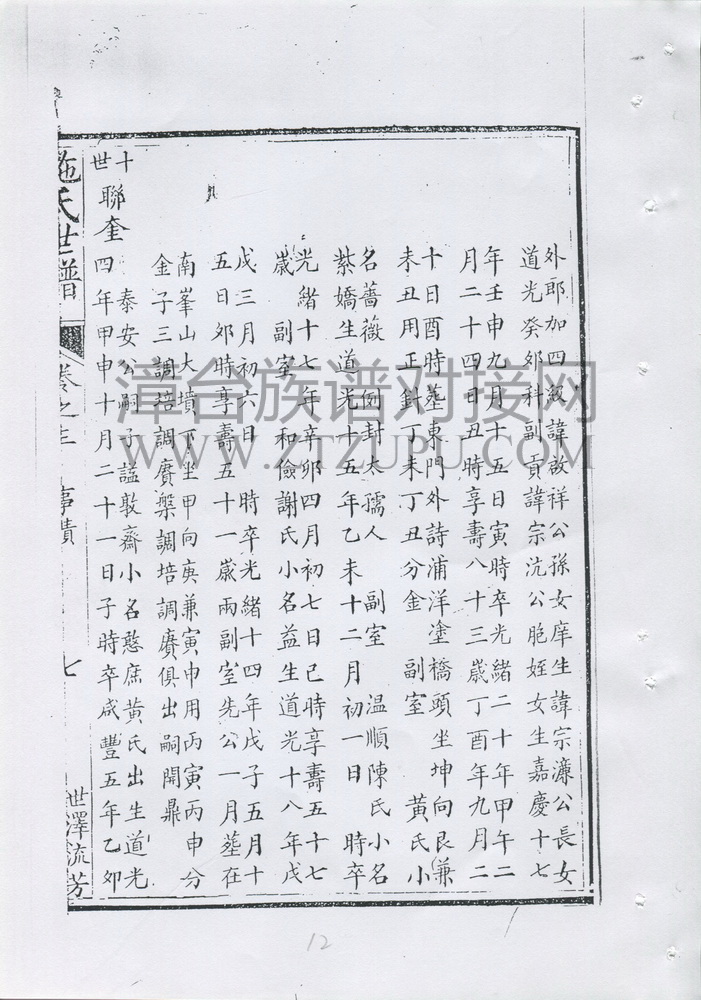 外郎加四級諱啟祥公孫女庠生諱宗濂公長女
道光癸卯科副貢諱宗沆公胞姪女生嘉慶十七
年壬申九月十五日寅時卒光緒二十年甲午二
月二十四日丑時享壽八十三歲丁酉年九月二
十日酉時塟東門外詩浦洋塗橋頭坐坤向艮兼
未丑用正針丁未丁丑分金 副室 黃氏小
名薔薇 例封太孺人 副室 温順陳氏小名
紫嬌生道光十五年乙未十二月初一日 時卒
光緒十七年辛卯四月初七日巳時享壽五十七
歲 副室 和儉謝氏小名益生道光十八年戊
戌三月初六日 時卒光緒十四年戊子五月十
五日卯時享壽五十一歲兩副室先公一月塟在
南峯山大墳下坐甲向庚兼寅申用丙寅丙申分
金子三調培調賡槃調培調賡俱出嗣開鼎
十世
聯奎 泰安公嗣子諡敦齋小名憨庶黃氏出生道光
四年甲申十月二十一日子時卒咸豐五年乙卯
施氏世譜 卷之三 事蹟 七 世澤流芳
漳台族谱对接网
WWW.ZTZUPU.COM
12